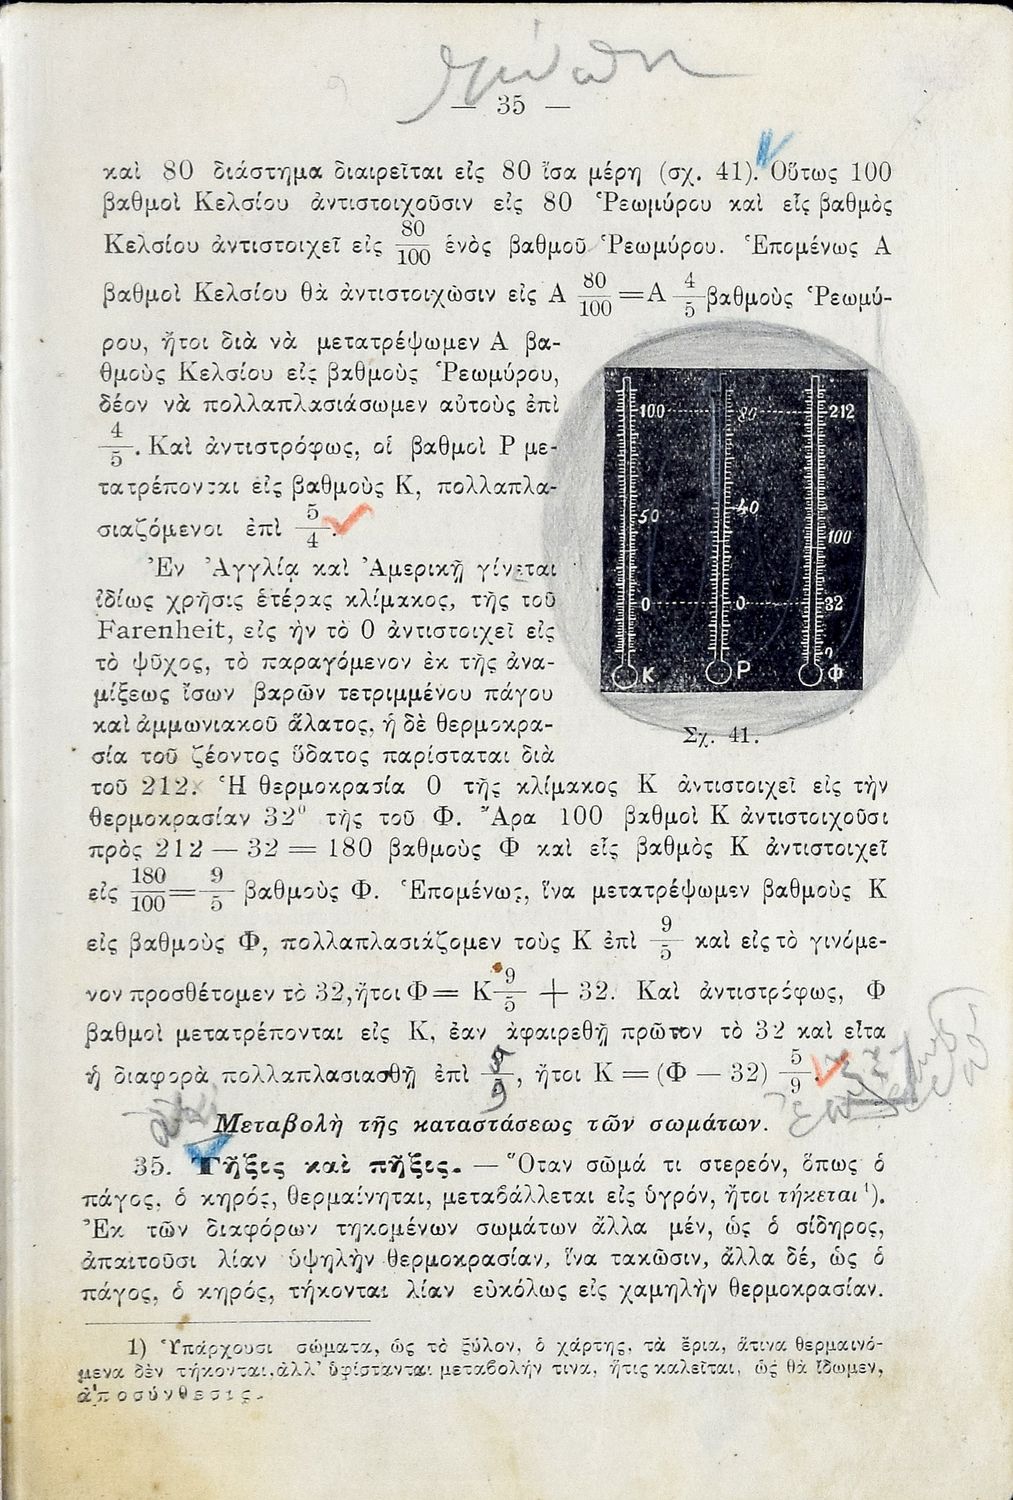 — 35 —
καὶ 80 διάστημα διαιρεῖται εἰς 80 ἴσα μέρη (σχ. 41). Οὕτως 100
βαθμοὶ Κελσίου ἀντιστοιχοῦσιν εἰς 80 Ῥεωμύρου καὶ εἷς βαθμὸς
Κελσίου ἀντιστοιχεῖ εἰς 80/100 ἑνὸς βαθμοῦ Ῥεωμύρου. Ἑπομένως Α
βαθμοὶ Κελσίου θὰ ἀντιστοιχῶσιν εἰς Α 80/100 = Α 4/5 βαθμοὺς Ῥεωμύ-
ρου, ἤτοι διὰ νὰ μετατρέψωμεν Α βα-
θμοὺς Κελσίου εἰς βαθμοὺς Ῥεωμύρου,
δέον νὰ πολλαπλασιάσωμεν αὐτοὺς ἐπὶ
4/5. Καὶ ἀντιστρόφως, οἱ βαθμοὶ Ρ με-
τατρέπονται εἰς βαθμοὺς Κ, πολλαπλα-
σιαζόμενοι ἐπὶ 5/4.
Ἐν Ἀγγλίᾳ καὶ Ἀμερικῇ γίνεται
ἰδίως χρῆσις ἑτέρας κλίμακος, τῆς τοῦ
Farenheit, εἰς ἣν τὸ 0 ἀντιστοιχεῖ εἰς
τὸ ψῦχος, τὸ παραγόμενον ἐκ τῆς ἀνα-
μίξεως ἴσων βαρῶν τετριμμένου πάγου
καὶ ἀμμωνιακοῦ ἅλατος, ἡ δὲ θερμοκρα-
σία τοῦ ζέοντος ὕδατος παρίσταται διὰ
100 80 212
50 40 100
0 0 32
0
Κ Ρ Φ
Σχ. 41.
τοῦ 212. Ἡ θερμοκρασία 0 τῆς κλίμακος Κ ἀντιστοιχεῖ εἰς τὴν
θερμοκρασίαν 32⁰ τῆς τοῦ Φ. Ἄρα 100 βαθμοὶ Κ ἀντιστοιχοῦσι
πρὸς 212 — 32 = 180 βαθμοὺς Φ καὶ εἷς βαθμὸς Κ ἀντιστοιχεῖ
εἰς 180/100 = 9/5 βαθμοὺς Φ. Ἑπομένως, ἵνα μετατρέψωμεν βαθμοὺς Κ
εἰς βαθμοὺς Φ, πολλαπλασιάζομεν τοὺς Κ ἐπὶ 9/5 καὶ εἰς τὸ γινόμε-
νον προσθέτομεν τὸ 32, ἤτοι Φ = Κ 9/5 + 32. Καὶ ἀντιστρόφως, Φ
βαθμοὶ μετατρέπονται εἰς Κ, ἐαν ἀφαιρεθῇ πρῶτον τὸ 32 καὶ εἶτα
ἡ διαφορὰ πολλαπλασιασθῇ ἐπὶ 5/9, ἤτοι Κ = (Φ — 32) 5/9.
Μεταβολὴ τῆς καταστάσεως τῶν σωμάτων.
35. Τῆξις καὶ πῆξις. — Ὅταν σῶμά τι στερεόν, ὅπως ὁ
πάγος, ὁ κηρός, θερμαίνηται, μεταβάλλεται εἰς ὑγρόν, ἤτοι τήκεται ¹).
Ἐκ τῶν διαφόρων τηκομένων σωμάτων ἄλλα μέν, ὡς ὁ σίδηρος,
ἀπαιτοῦσι λίαν ὑψηλὴν θερμοκρασίαν, ἵνα τακῶσιν, ἄλλα δέ, ὡς ὁ
πάγος, ὁ κηρός, τήκονται λίαν εὐκόλως εἰς χαμηλὴν θερμοκρασίαν.
1) Ὑπάρχουσι σώματα, ὡς τὸ ξύλον, ὁ χάρτης, τὰ ἔρια, ἅτινα θερμαινό-
μενα δὲν τήκονται, ἀλλ' ὑφίστανται μεταβολήν τινα, ἥτις καλεῖται, ὡς θὰ ἴδωμεν,
ἀποσύνθεσις.